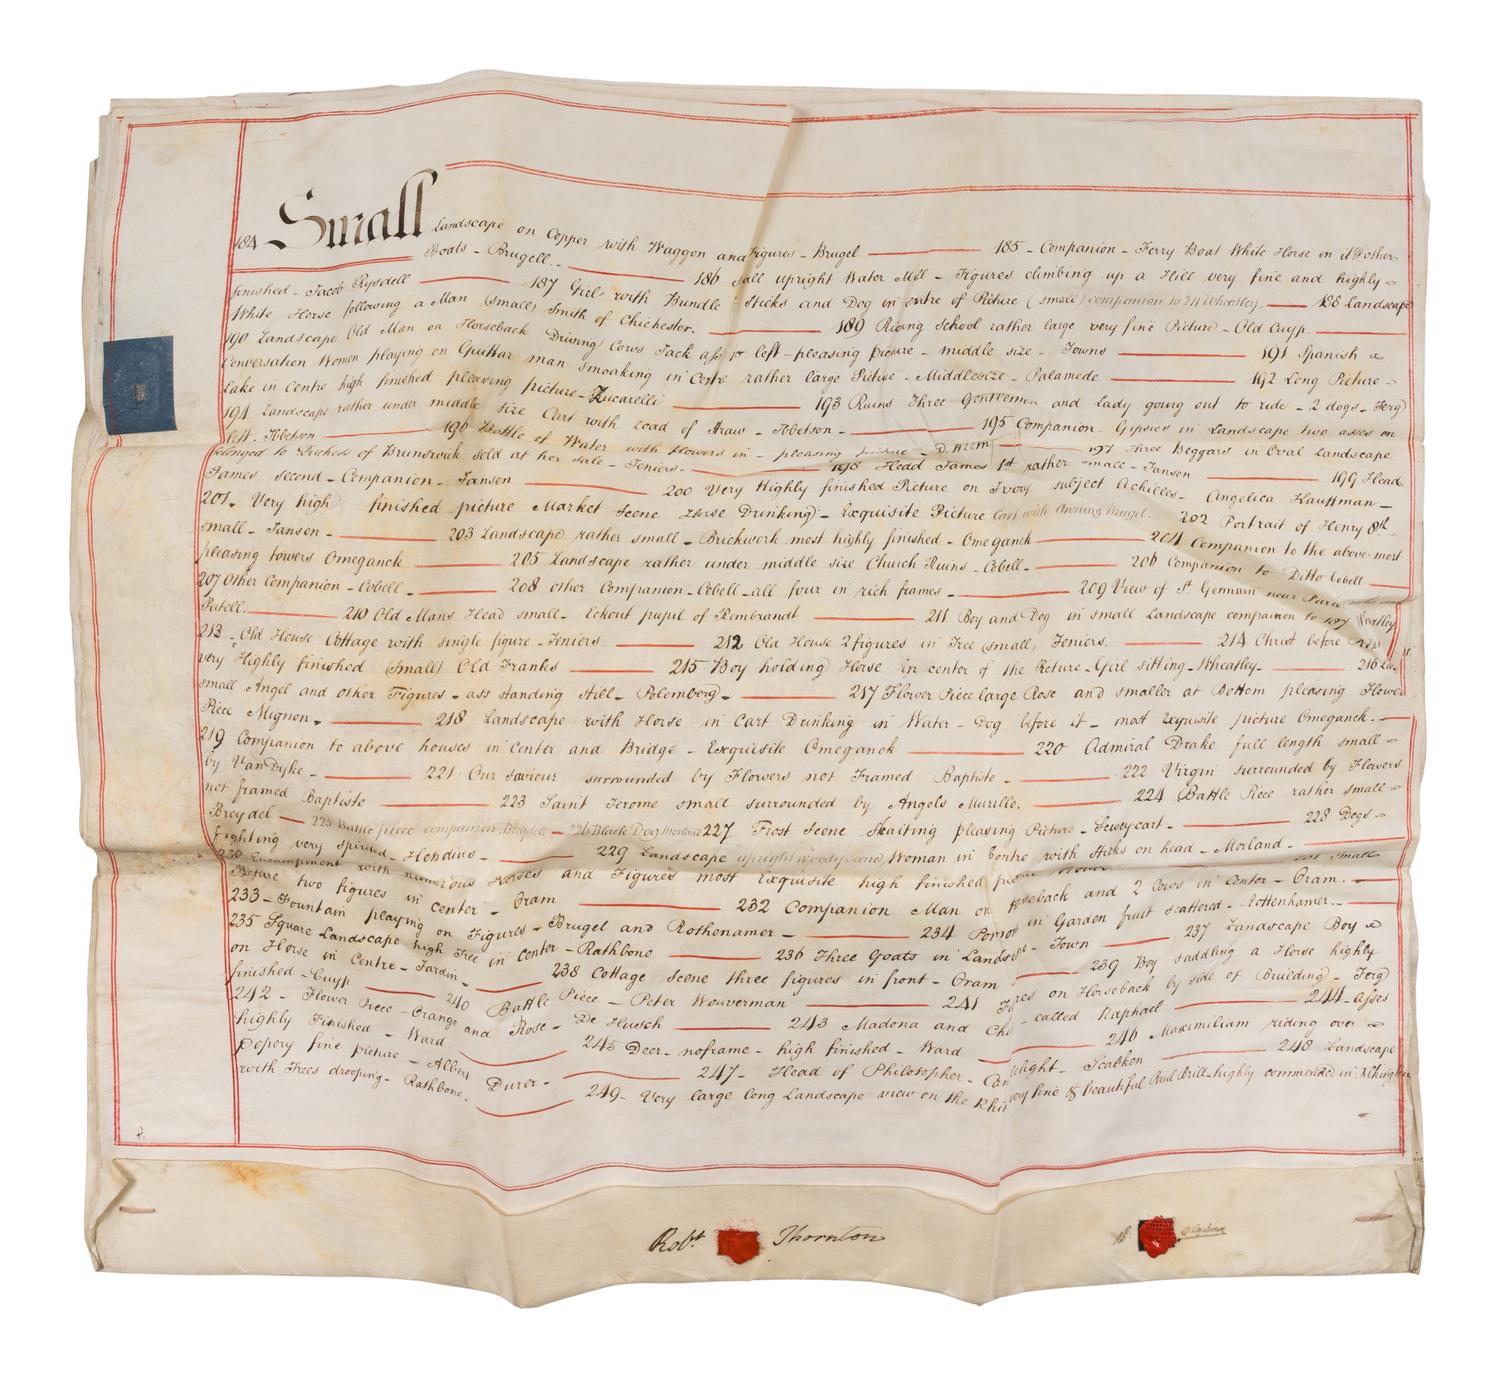 184 Small Landscape on Copper with Waggon and Figures - Brugel 185 - Companion - Ferry Boat White Horse in it other
Boats - Brugell. 186 Tall upright Water Mill - Figures climbing up a Hill very fine and highly
finished - Jacob Rysdell 187 Girl with Bundle Sticks and Dog in Centre of Picture (small) companion to 211 Wheatley. 188 Landscape
White Horse following a Man (small) Smith of Chichester. 189 Riding School rather large very fine Picture - Old Cuyp.
190 Landscape Old Man on Horseback Driving Cows Jack ass to left - pleasing picture - middle size - Towns 191 Spanish
Conversation Women playing on Guittar man smoaking in Centre rather large Picture - Middlesize - Palamede 192 Long Picture -
Lake in Centre high finished pleasing picture - Zucarelli 193 Ruins Three Gentlemen and Lady going out to ride - 2 dogs - Ferg
194 Landscape rather under middle size Cart with Load of Straw - Ibbetson - 195 Companion - Gipsies in Landscape two asses on
left. Ibbetson 196 Bottle of Water with flowers in - pleasing - 197 Three Beggars in Oval Landscape
belonged to Duchess of Brunswick sold at her Sale - Teniers. 198 Head James 1st rather small - Jansen 199 Head
James second - Companion - Jansen 200 Very Highly finished Picture on Ivory subject Achilles - Angelica Kauffman -
201. Very high finished picture Market Scene Horse Drinking - Exquisite Picture Cart with Awning Brugel. 202 Portrait of Henry 8th
small - Jansen - 203 Landscape rather small - Brickwork most highly finished - Omeganck 204 Companion to the above most
pleasing towers Omeganck 205 Landscape rather under middle size Church Ruins - Cobell - 206 Companion to Ditto Cobell
207 Other Companion - Cobell - 208 other Companion - Cobell - all four in rich frames - 209 View of St. Germain near Paris
Patell. 210 Old Mans Head small - Eckout pupil of Rembrandt 211 Boy and Dog in small Landscape companion to 187 Wheatley
213 - Old House Cottage with single figure - Teniers 212 Old House 2 figures in Tree (small) Teniers. 214 Christ before
very Highly finished (Small) Old Franks 215 Boy holding Horse in center of the Picture - Girl sitting - Wheatley - 216
small Angel and other Figures - ass standing still - Polemberg - 217 Flower Piece large Rose and smaller at Bottom pleasing Flower
Piece Mignon. 218 Landscape with Horse in Cart Drinking in Water - Dog before it - most Exquisite picture Omeganck.
219 Companion to above houses in Center and Bridge - Exquisite Omeganck 220 Admiral Drake full length small -
by VanDyke - 221 Our Saviour surrounded by Flowers not Framed Baptiste - 222 Virgin surrounded by Flowers
not framed Baptiste 223 Saint Jerome small surrounded by Angels Murillo. 224 Battle Piece rather small -
Breydel - 225 Battle piece companion Breydell - 226 Black Dog Morland 227 Frost Scene Skaiting pleasing Picture - Seweycart - 228 Dogs -
fighting very spirited - Hondius - 229 Landscape upright woody scene Woman in Centre with Sticks on head - Morland -
230 Encampment with numerous Horses and Figures most Exquisite high finished 231 Small
Before two figures in Center - Cram 232 Companion Man on Horseback and 2 Cows in Center - Cram.
233 - Fountain playing on Figures - Brugel and Rothenamer - 234 in Garden fruit scattered - Rottenhamer.
235 Square Landscape high Tree in Center - Rathbone 236 Three Goats in - Town 237 Landscape Boy
on Horse in Centre - Jardin - 238 Cottage Scene three figures in front - Cram 239 Boy saddling a Horse highly
finished - Cuyp 240 Battle Piece - Peter Wouverman 241 on Horseback by side of Building - Ferg
242 - Flower Piece - Orange and Rose - De Husch 243 Madona and - called Raphael 244 - Asses
highly Finished - Ward 245 Deer - noframe - high finished - Ward 246 Maximilian riding over
Popery fine picture - Albert Durer - 247 - Head of Philosopher - - Scalken 248 Landscape
with Trees drooping - Rathbone - 249 - Very large long Landscape view on the very fine & beautiful highly commended in
Robt Thornton